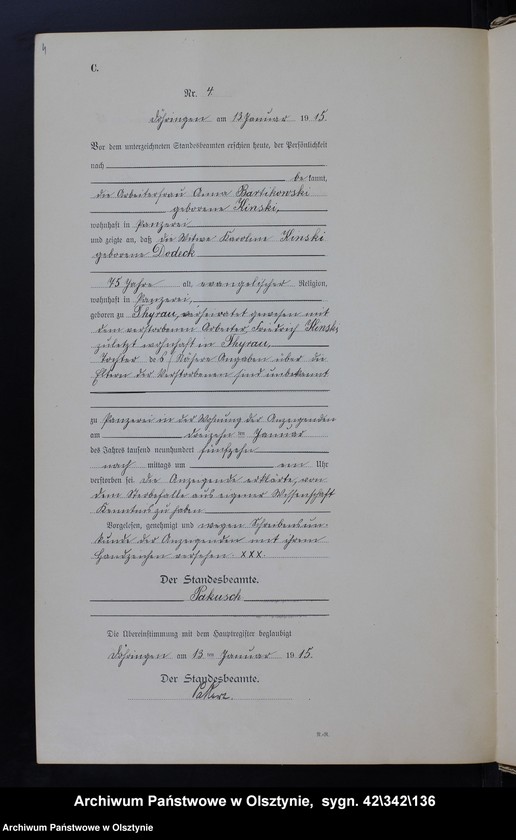 4
C.
Nr. 4.
Döhringen am 13 Januar 1915.
Vor dem unterzeichneten Standesbeamten erschien heute, der Persönlichkeit
nach
bekannt,
die Arbeiterfrau Anna Bartikowski
geborene Kinski,
wohnhaft in Panzerei
und zeigte an, daß die Witwe Karoline Kinski
geborene Dodeck
75 Jahre alt, evangelischer Religion,
wohnhaft in Panzerei,
geboren zu Thyrau, verheiratet gewesen mit
dem verstorbenen Arbeiter Friedrich Kinski,
zuletzt wohnhaft in Thyrau,
Tochter des / Nähere Angaben über die
Eltern der Verstorbenen sind unbekannt
zu Panzerei in der Wohnung der Anzeigenden
am dreizehn ten Januar
des Jahres tausend neunhundert fünfzehn
nach mittags um ein Uhr
verstorben sei. Die Anzeigende erklärte, von
dem Sterbefalle aus eigener Wissenschaft
Kenntnis zu haben.
Vorgelesen, genehmigt und wegen Schreibensun-
kunde der Anzeigenden mit ihrem
Handzeichen versehen. XXX.
Der Standesbeamte.
Pakusch
Die Übereinstimmung mit dem Hauptregister beglaubigt
Döhringen am 13 ten Januar 1915.
Der Standesbeamte.
Archiwum Państwowe w Olsztynie, sygn. 42\342\136
Archiwum Państwowe w Olsztynie